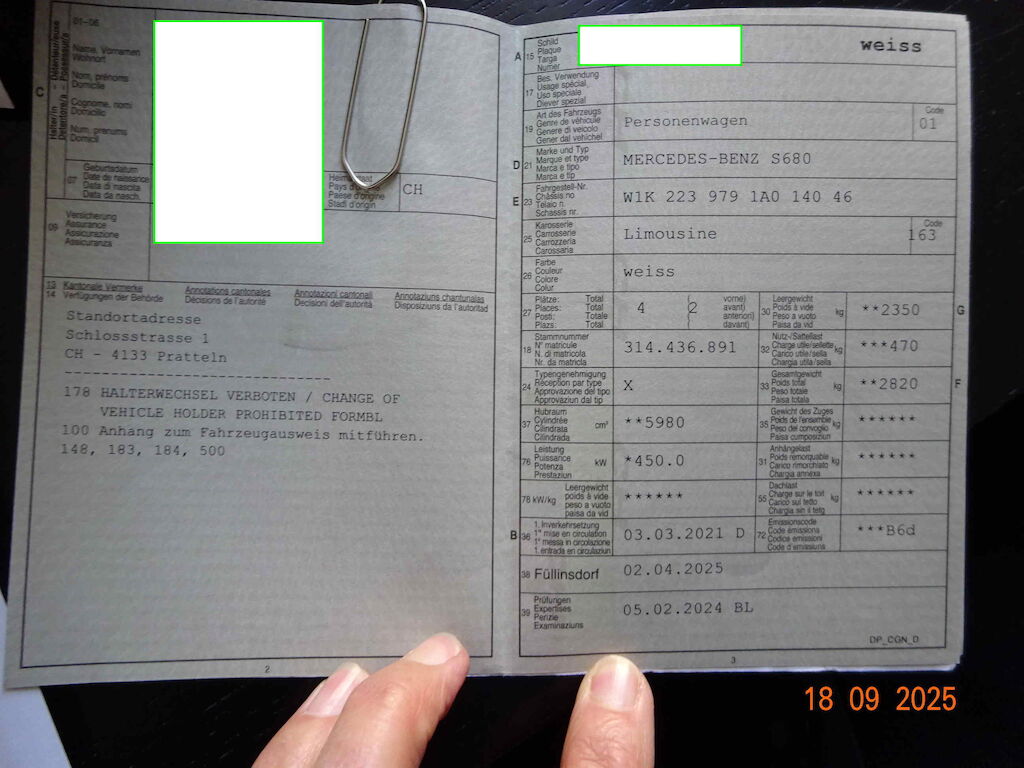 01-06
Halter/in - Détenteur/euse
Detentore/a - Possessur/a
C
Name, Vornamen
Wohnort
Nom, prénoms
Domicile
Cognome, nomi
Domicilio
Num, prenums
Domicil
07
Geburtsdatum
Date de naissance
Data di nascita
Data da nasch.
Heimatstaat
Pays d'origine
Paese d'origine
Stadi d'origin
CH
09
Versicherung
Assurance
Assicurazione
Assicuranza
13 Kantonale Vermerke Annotations cantonales Annotazioni cantonali Annotaziuns chantunalas
14 Verfügungen der Behörde Décisions de l'autorité Decisioni dell'autorità Disposiziuns da l'autoritad
Standortadresse
Schlossstrasse 1
CH - 4133 Pratteln
------------------------------
178 HALTERWECHSEL VERBOTEN / CHANGE OF
VEHICLE HOLDER PROHIBITED FORMBL
100 Anhang zum Fahrzeugausweis mitführen.
148, 183, 184, 500
2
A 15
Schild
Plaque
Targa
Numer
weiss
17
Bes. Verwendung
Usage spécial
Uso speciale
Diever spezial
19
Art des Fahrzeugs
Genre de véhicule
Genere di veicolo
Gener dal vehichel
Personenwagen
Code
01
D 21
Marke und Typ
Marque et type
Marca e tipo
Marca e tip
MERCEDES-BENZ S680
E 23
Fahrgestell-Nr.
Châssis no
Telaio n.
Schassis nr.
W1K 223 979 1A0 140 46
25
Karosserie
Carrosserie
Carrozzeria
Carossaria
Limousine
Code
163
26
Farbe
Couleur
Colore
Colur
weiss
27
Plätze: Total
Places: Total
Posti: Totale
Plazs: Total
4 (2
vorne)
avant)
anteriori)
davant)
30
Leergewicht
Poids à vide
Peso a vuoto
Paisa da vid
kg
**2350
G
18
Stammnummer
N° matricule
N. di matricola
Nr. da matricla
314.436.891
32
Nutz-/Sattellast
Charge utile/sellette
Carico utile/sella
Chargia utila/sella
kg
***470
24
Typengenehmigung
Réception par type
Approvazione del tipo
Approvaziun dal tip
X
33
Gesamtgewicht
Poids total
Peso totale
Paisa totala
kg
**2820
F
37
Hubraum
Cylindrée
Cilindrata
Cilindrada
cm³
**5980
35
Gewicht des Zuges
Poids de l'ensemble
Peso del convoglio
Paisa cumposiziun
kg
******
76
Leistung
Puissance
Potenza
Prestaziun
kW
*450.0
31
Anhängelast
Poids remorquable
Carico rimorchiato
Chargia annexa
kg
******
78 kW/kg
Leergewicht
poids à vide
peso a vuoto
paisa da vid
******
55
Dachlast
Charge sur le toit
Carico sul tetto
Chargia sin il tetg
kg
******
B 36
1. Inverkehrsetzung
1re mise en circulation
1a messa in circolazione
1. entrada en circulaziun
03.03.2021 D
72
Emissionscode
Code émissions
Codice emissioni
Code d'emissiuns
***B6d
38 Füllinsdorf 02.04.2025
39
Prüfungen
Expertises
Perizie
Examinaziuns
05.02.2024 BL
DP_CGN_D
3
18 09 2025